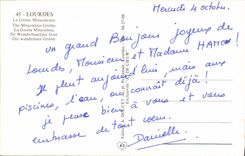 45 - LOURDES
La Grotte Miraculeuse
The Miraculous Grotto
La Grotta Miracolosa
De Wonderbaarlijke Grot
Die wunderbare Grotte
Mercredi 4 octobre.
un grand Bonjour joyeux de
Lourdes, Monsieur et Madame HAMON!
Il pleut aujourd'hui, mais aux
piscines, l'eau, on connait déjà!
je pense bien à vous et vous
embrasse de tout cœur.
Danielle